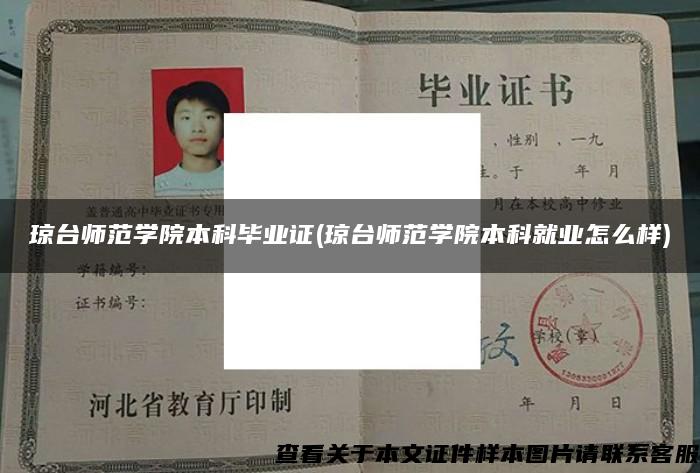 毕业证书
，性别 ，一九
生。于 年 月
月在本校高中修业
盖普通高中毕业证书专用
琼台师范学院本科毕业证(琼台师范学院本科就业怎么样)
学籍编号：
证书编号：
学校(章)
1306330001377
河北省教育厅印制
年 月 日
查看关于本文证件样本图片请联系客服